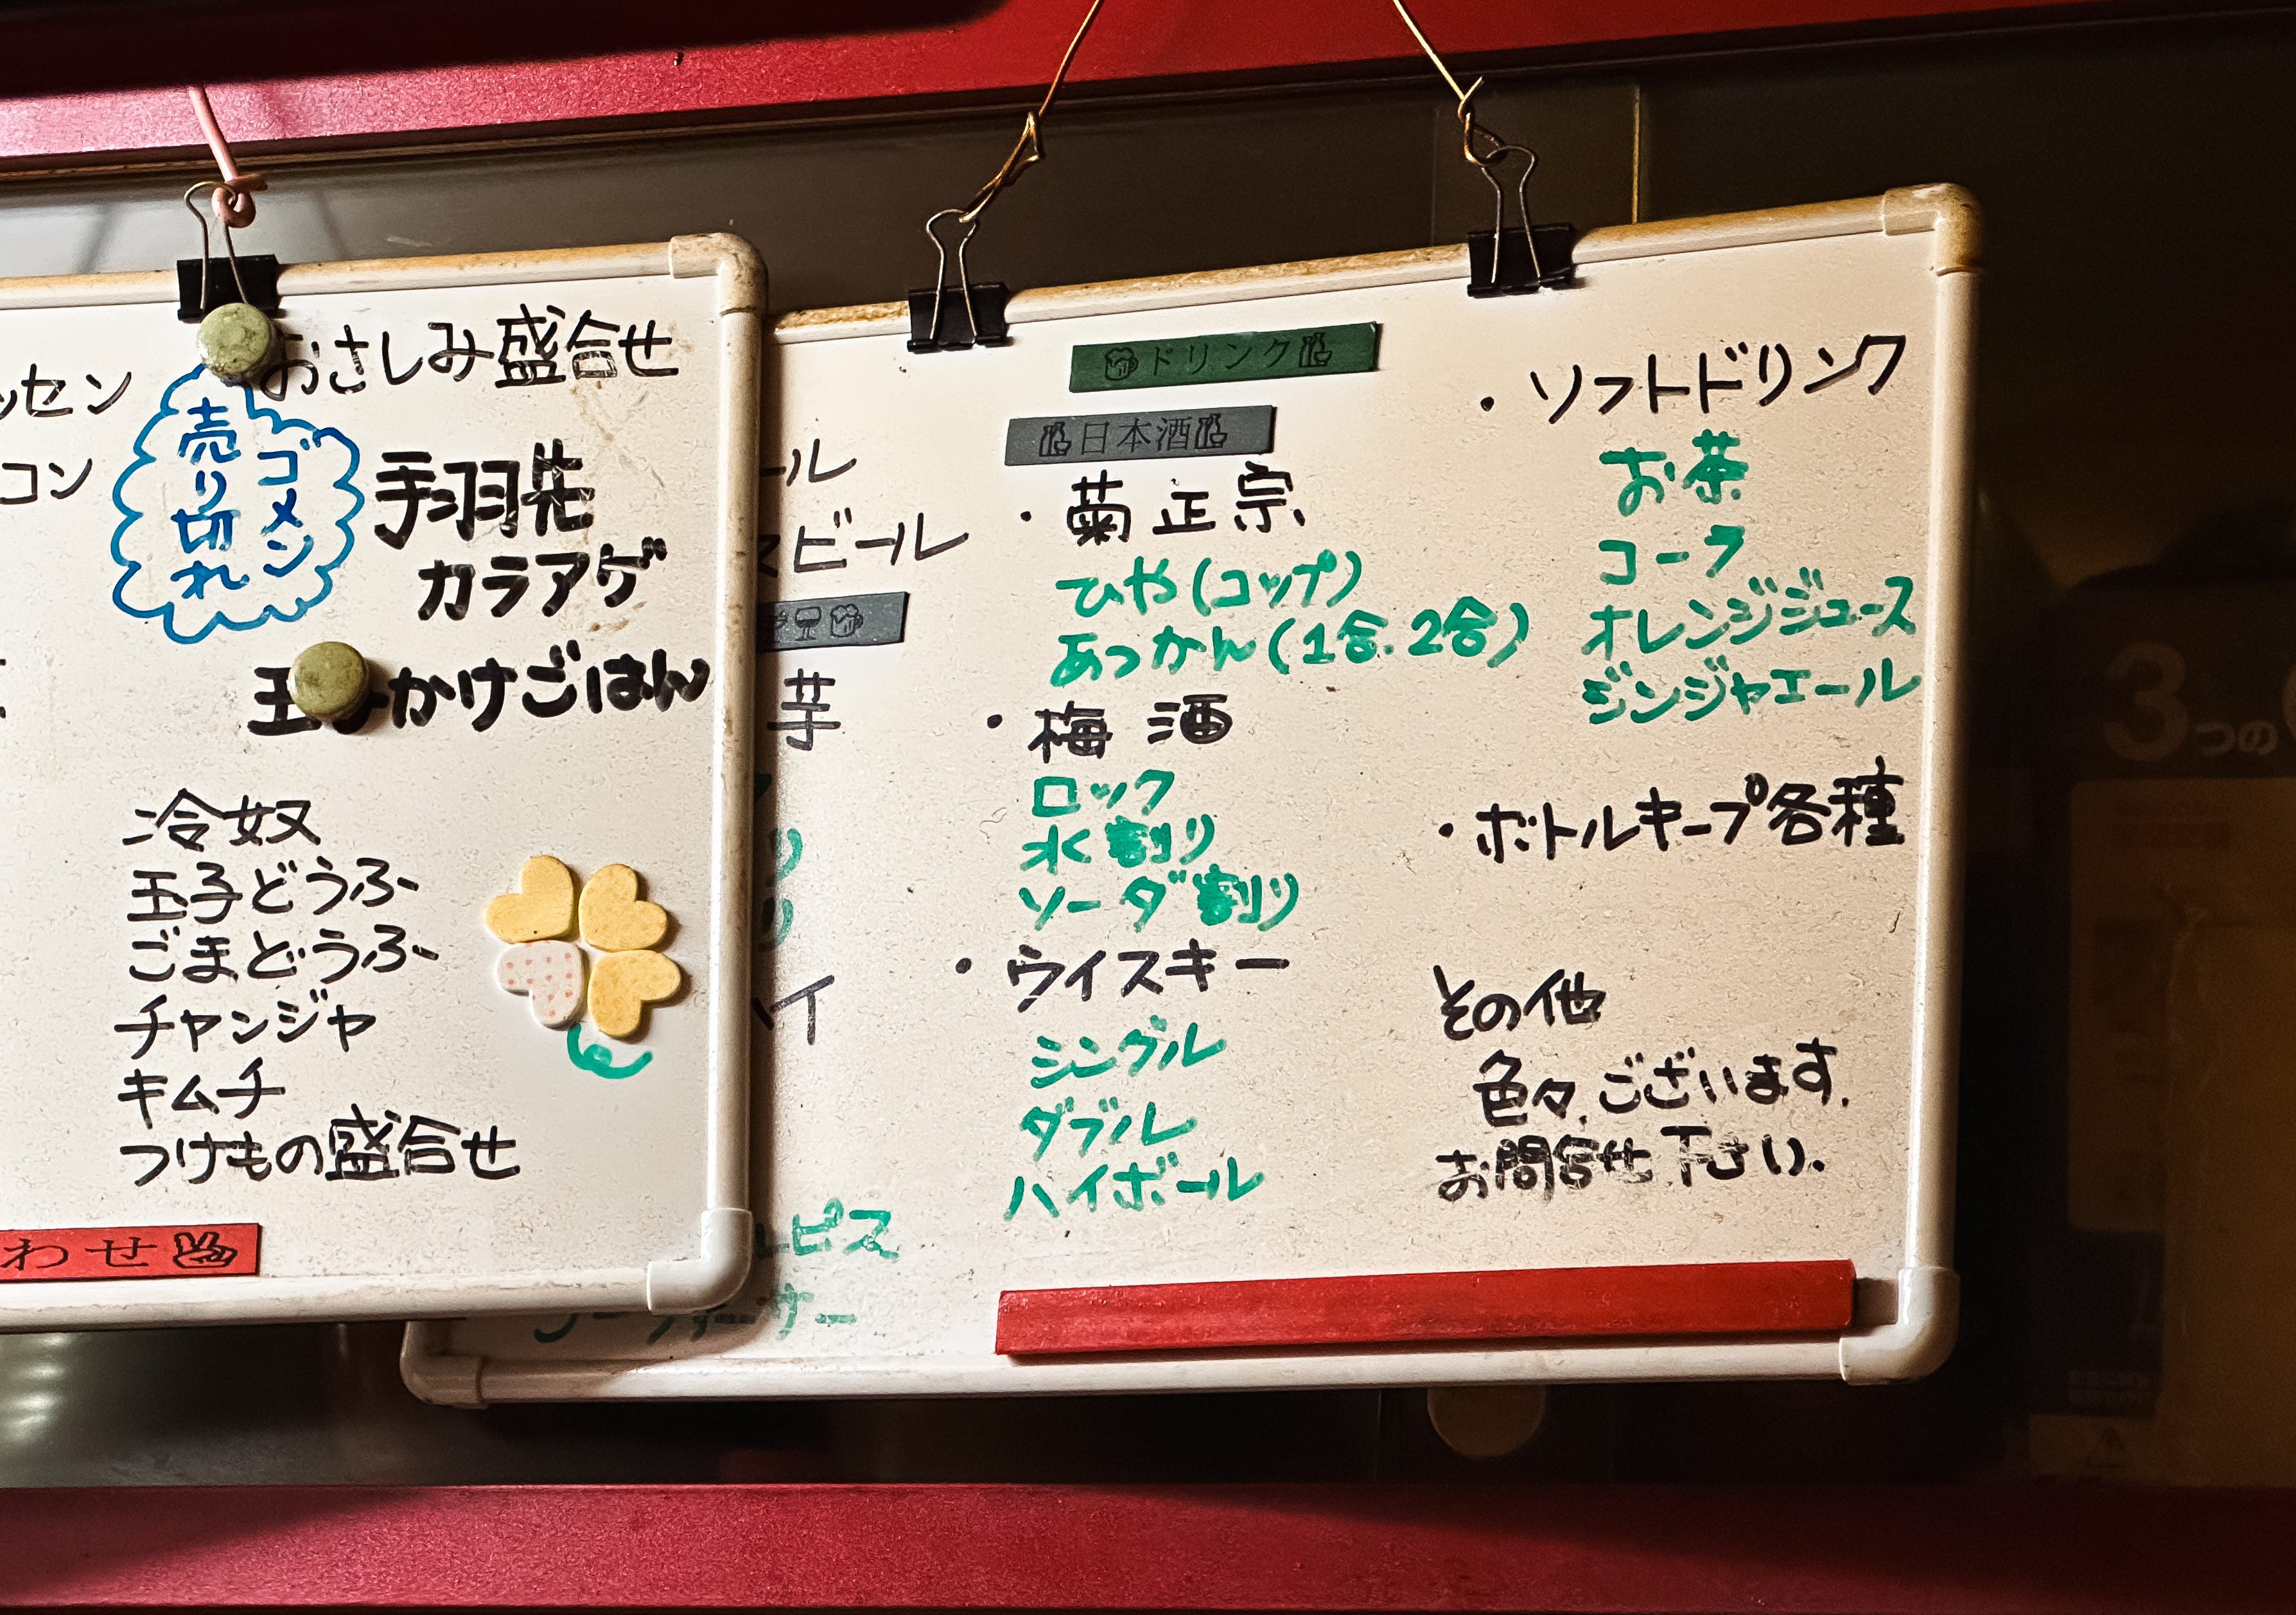 ッセン
コン
おさしみ盛合せ
ゴメン
売り切れ
手羽先
カラアゲ
かけごはん
冷奴
玉子どうふ
ごまどうふ
チャンジャ
キムチ
つけもの盛合せ
わせ
ール
スビール
芋
り
り
ハイ
ルピス
ドリンク
日本酒
・菊正宗
ひや(コップ)
あつかん(1合.2合)
・梅酒
ロック
水割り
ソーダ割り
・ウイスキー
シングル
ダブル
ハイボール
・ソフトドリンク
お茶
コーラ
オレンジジュース
ジンジャエール
・ボトルキープ各種
その他
色々.ございます.
お問合せ下さい.
3つの